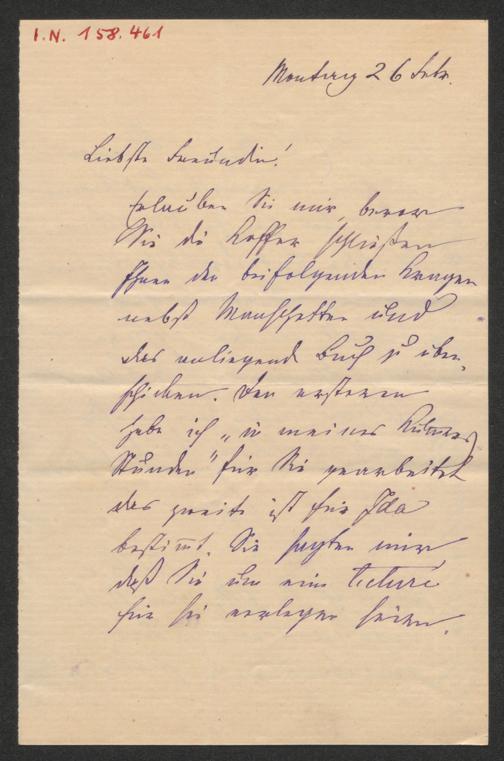 I.N. 158.461
Montag 26 Febr.
Liebste Freundin!
Erlauben Sie mir, bevor
Sie die Koffer schließen
Ihnen den beifolgenden Kragen
nebst Manschetten und
das anliegende Buch zu über-
schicken. Den ersteren
habe ich „in meinen
Stunden" für Sie gearbeitet
das zweite ist für Ida
bestimt. Sie sagten mir
daß Sie um eine Lecture
für sie verlegen seien.